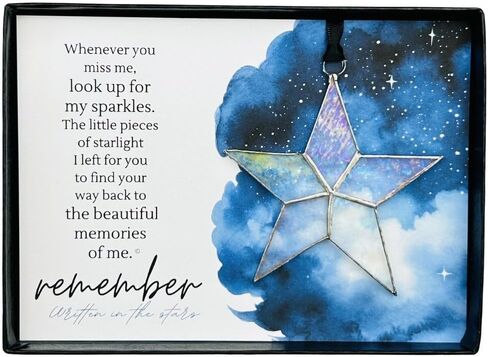 Whenever you
miss me,
look up for
my sparkles.
The little pieces
of starlight
I left for you
to find your
way back to
the beautiful
memories
of me.©
remember
written in the stars